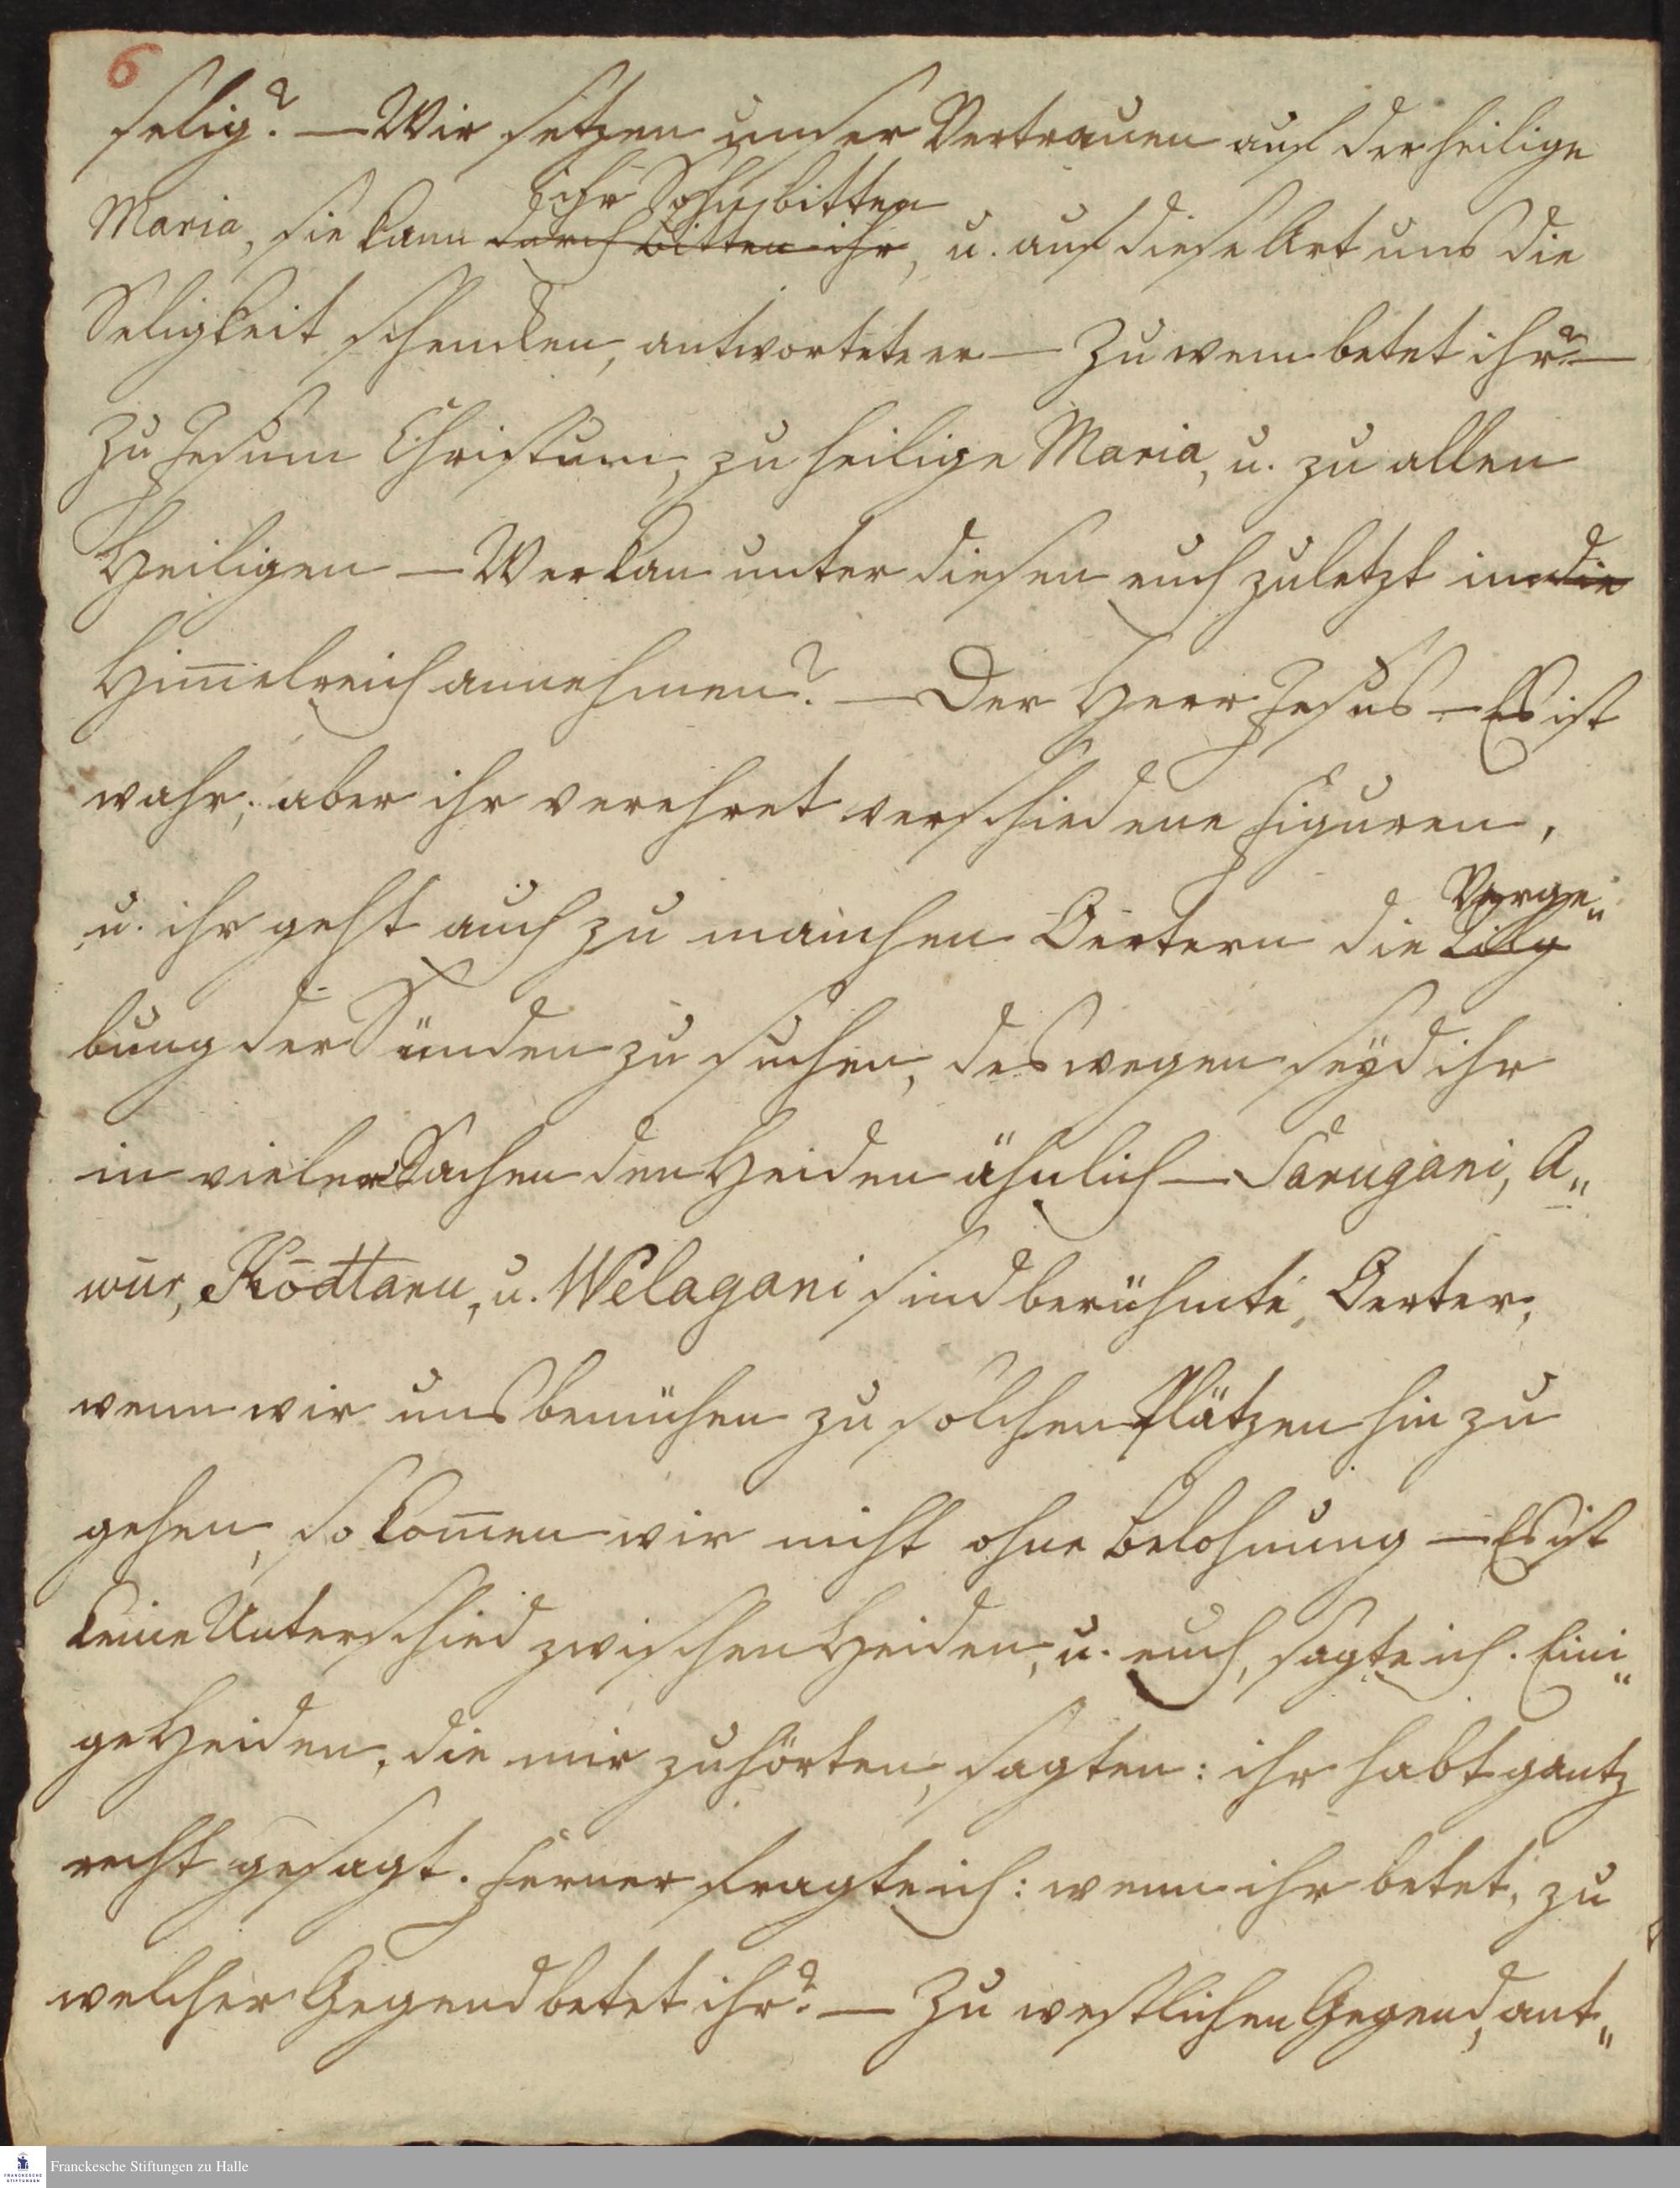 6
selig? — Wir setzen unser Vertrauen auf der heilige
ihr Sohn bitten
Maria, sie kann durch bitten ihr, u. auf diese Art uns die
Seligkeit schencken, antwortete er — Zu wem betet ihr? —
Zu Jesum Christum, zu heilige Maria, u. zu allen
Heiligen — Wer kan unter diesen euch zuletzt in die
Him̅elreich annehmen? — Der Herr Jesus — Es ist
wahr; aber ihr verehret verschiedene Figuren,
u. ihr geht auch zu manchen Oertern die Verge„
bung der Sünden zu suchen, deswegen seyd ihr
in vielen Sachen den Heiden ähnlich — Sarugani, A„
wur, Kōdtaru, u. Welagani sind berühmte Oerter,
wenn wir uns bemühen zu solchen Plätzen hin zu
gehen, so kom̅en wir nicht ohne Belohnung — Es ist
keine Unterschied zwischen Heiden, u. euch, sagte ich. Eini„
ge Heiden, die mir zuhörten, sagten: ihr habt gantz
recht gesagt. Ferner fragte ich: wenn ihr betet, zu
welcher Gegend betet ihr? — Zu westlichen Gegend, ant„
Franckesche Stiftungen zu Halle